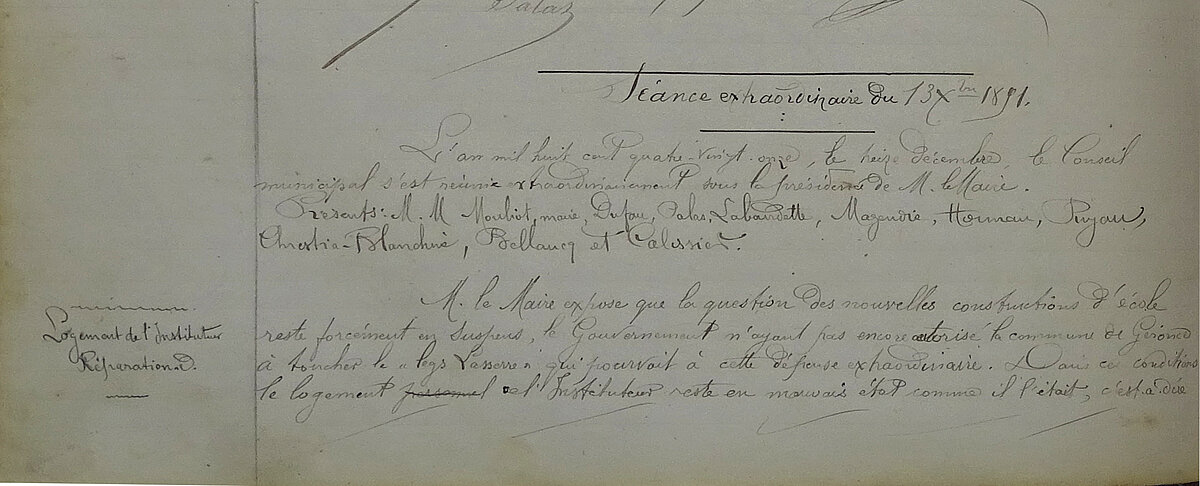 Palas
Séance extraordinaire du 13 Xbre 1891.
L'an mil huit cent quatre-vingt-onze, le treize décembre, le Conseil
municipal s'est réuni extraordinairement sous la présidence de M. le Maire.
Présents: M. M Mouliot, maire, Dufau, Palas, Labaudette, Magendie, Hourcau, Pujau,
Chrestia-Blanchine, Bellaucq et Calessier.
M. le Maire expose que la question des nouvelles constructions d'école
Logement de l'Instituteur
reste forcément en suspens, le Gouvernement n'ayant pas encore autorisé la commune de Géronce
Réparation.
à toucher le « legs Lasserre » qui pourvoit à cette dépense extraordinaire. Dans ces conditions
le logement personnel de l'Instituteur reste en mauvais état comme il l'était, c'est-à-dire